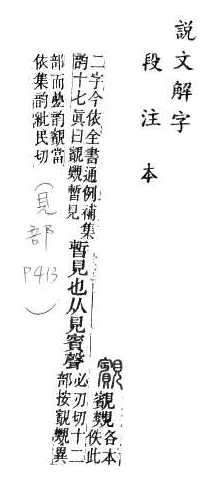 說文解字
段注本
各本
佚此
二字今依全書通例補集
韵十七眞曰暫見
暫見也从見賓聲
必刃切十二
部按異
部而韵當
依集韵紕民切
(見部P413)